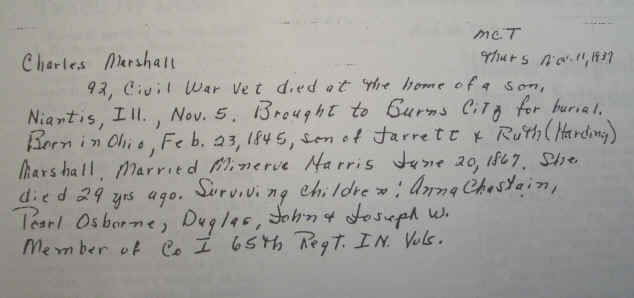 McT
Charles Marshall Thurs Nov. 11, 1937
92, Civil War Vet died at the home of a son,
Niantis, Ill., Nov. 5. Brought to Burns City for burial.
Born in Ohio, Feb. 23, 1845, son of Jarrett & Ruth (Harding)
Marshall. Married Minerve Harris June 20, 1867. She
died 29 yrs ago. Surviving children: Anna Chastain,
Pearl Osborne, Duglas, John & Joseph W.
Member of Co I 65th Regt. IN. Vols.